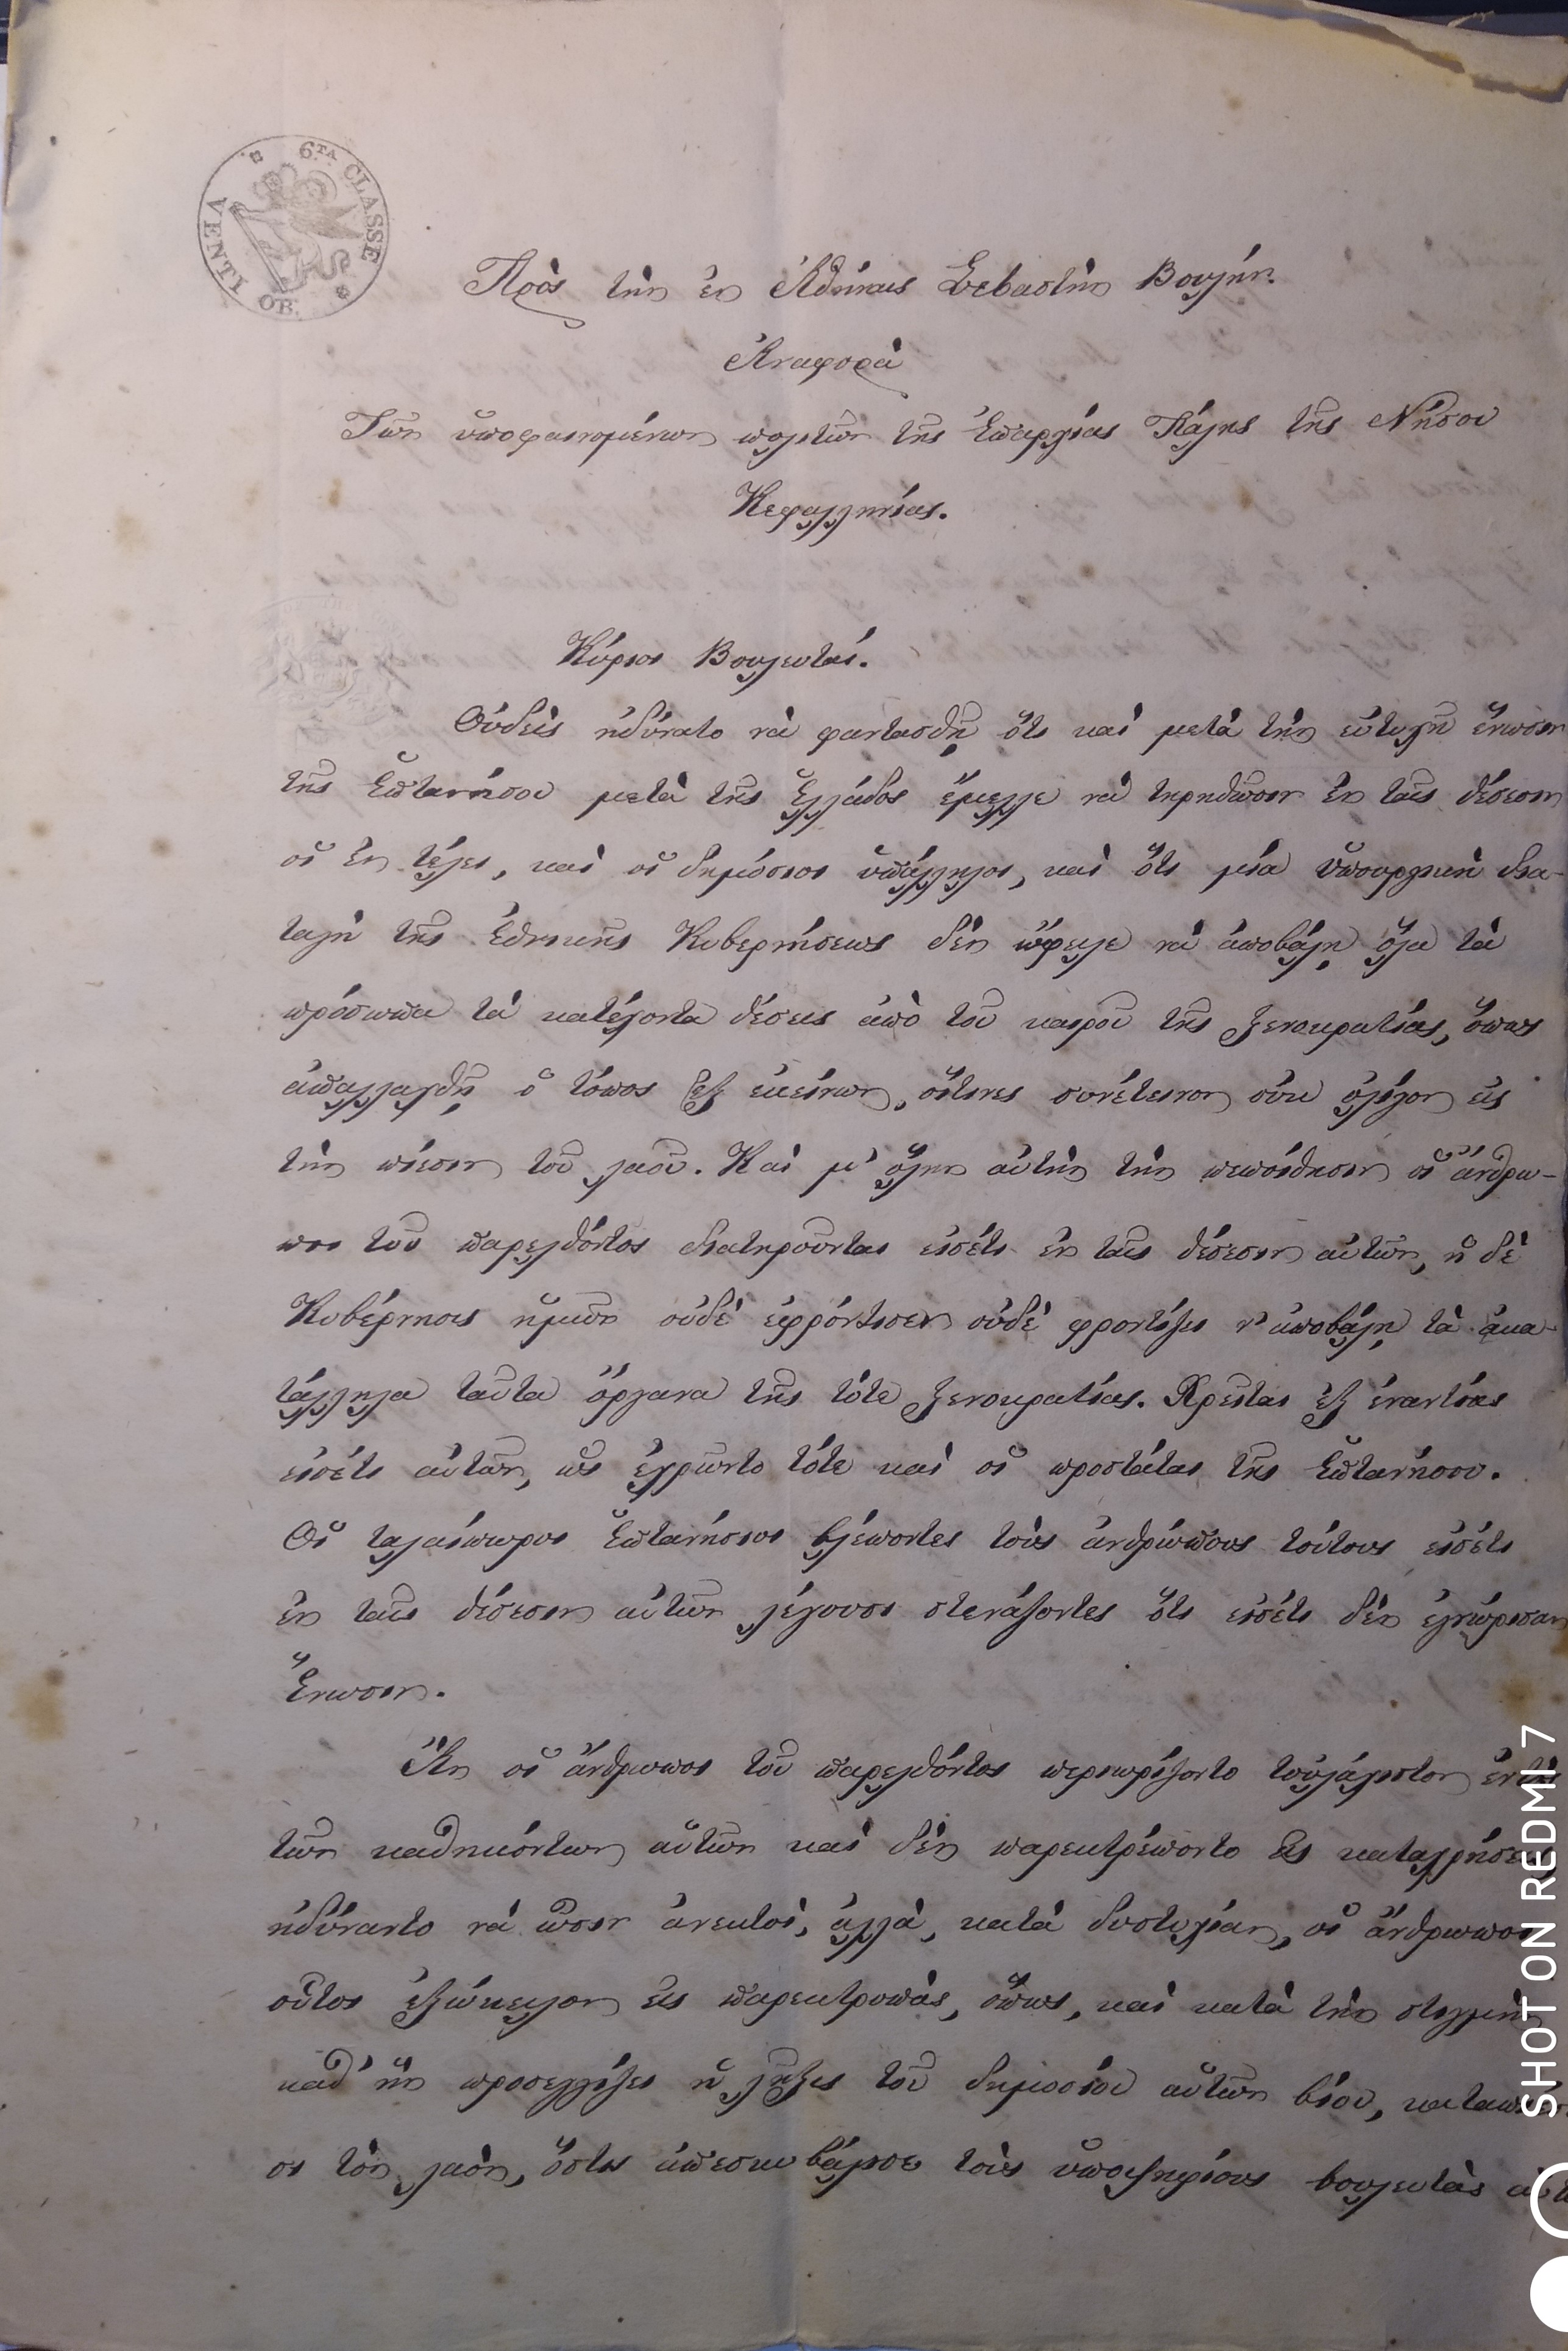 6TA CLASSE
VENTI OB.
Πρὸς τὴν ἐν Ἀθήναις Σεβαστὴν Βουλήν.
Ἀναφορὰ
Τῶν ὑποφαινομένων πολιτῶν τῆς Ἐπαρχίας Πάλης τῆς Νήσου
Κεφαλληνίας.
Κύριοι Βουλευταί.
Οὐδεὶς ἠδύνατο νὰ φαντασθῇ ὅτι καὶ μετὰ τὴν εὐτυχῆ ἕνωσιν
τῆς Ἑπτανήσου μετὰ τῆς Ἑλλάδος ἔμελλε νὰ τηρηθῶσιν ἐν ταῖς θέσεσιν
οἱ ἐν τέλει, καὶ οἱ δημόσιοι ὑπάλληλοι, καὶ ὅτι μία ὑπουργικὴ δια-
ταγὴ τῆς Ἐθνικῆς Κυβερνήσεως δὲν ὤφειλε νὰ ἀποβάλῃ ὅλα τὰ
πρόσωπα τὰ κατέχοντα θέσεις ἀπὸ τοῦ καιροῦ τῆς ξενοκρατίας, ὅπως
ἀπαλλαχθῇ ὁ τόπος ἐξ ἐκείνων, οἵτινες συνέτεινον οὐκ ὀλίγον εἰς
τὴν πίεσιν τοῦ λαοῦ. Καὶ μ' ὅλην αὐτὴν τὴν πεποίθησιν οἱ ἄνθρω-
ποι τοῦ παρελθόντος διατηροῦνται εἰσέτι ἐν ταῖς θέσεσιν αὐτῶν, ἡ δὲ
Κυβέρνησις ἡμῶν οὐδὲ ἐφρόντισεν οὐδὲ φροντίζει ν' ἀποβάλῃ τὰ ἀκα-
τάλληλα ταῦτα ὄργανα τῆς τότε ξενοκρατίας. Χρεῖται ἐξ ἐναντίας
εἰσέτι αὐτῶν, ὡς ἐχρῶντο τότε καὶ οἱ προστάται τῆς Ἑπτανήσου.
Οἱ ταλαίπωροι Ἑπτανήσιοι βλέποντες τοὺς ἀνθρώπους τούτους εἰσέτι
ἐν ταῖς θέσεσιν αὐτῶν λέγουσι στενάζοντες ὅτι εἰσέτι δὲν ἐγνώρισαν
Ἕνωσιν.
Ἂν οἱ ἄνθρωποι τοῦ παρελθόντος περιωρίζοντο τοὐλάχιστον ἐντὸς
τῶν καθηκόντων αὑτῶν καὶ δὲν παρεκτρέποντο εἰς καταχρήσεις
ἠδύναντο νὰ ὦσιν ἀνεκτοί, ἀλλὰ, κατὰ δυστυχίαν, οἱ ἄνθρωποι
οὗτοι ἐξώκειλον εἰς παρεκτροπάς, ὅπως, καὶ κατὰ τὴν στιγμὴν
καθ' ἣν προσεγγίζει ἡ λῆξις τοῦ δημοσίου αὑτῶν βίου,
σι τὸν λαὸν, ὅστις ἀπεσκυβάλισε τοὺς ὑποψηφίους βουλευτὰς
SHOT ON REDMI 7